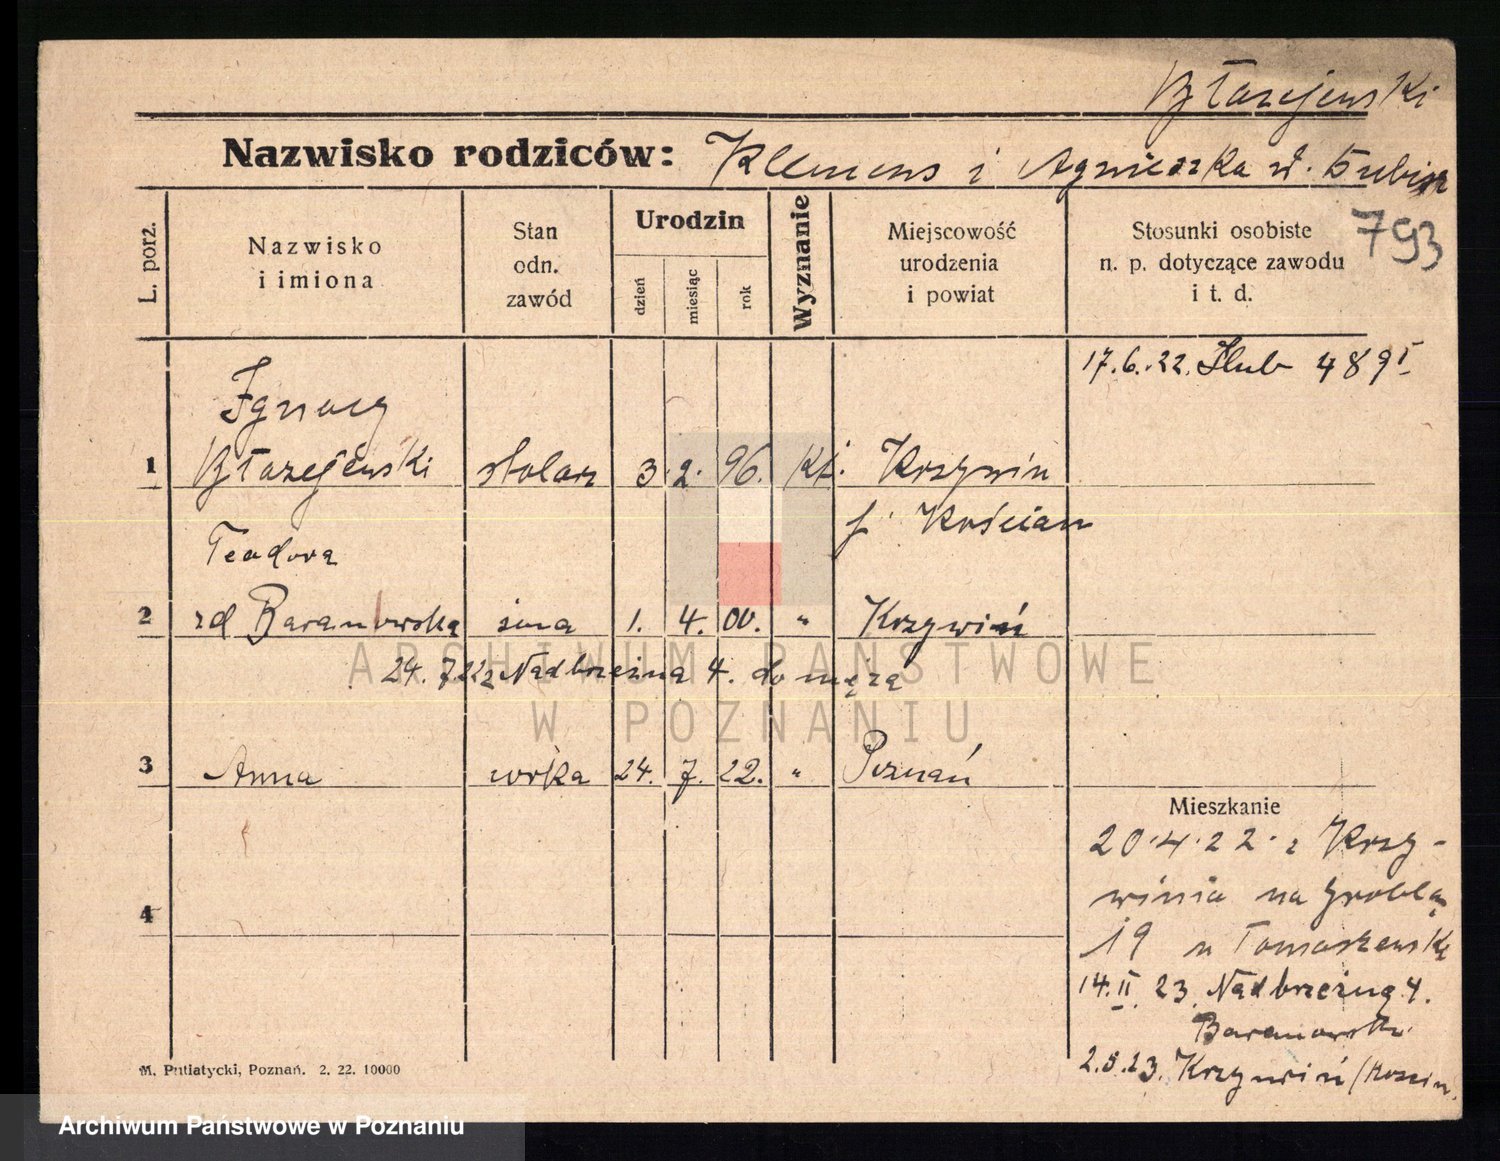 Błazejewski
Nazwisko rodziców: Klemens i Agnieszka
793
L. porz.
Nazwisko
i imiona
Stan
odn.
zawód
Urodzin
dzień
miesiąc
rok
Wyznanie
Miejscowość
urodzenia
i powiat
Stosunki osobiste
n. p. dotyczące zawodu
i t. d.
17.6.22. Ślub 489 I
Ignacy
1 Błazejewski stolarz 3. 2. 96. kt. Krzywin
Kościan
Teodora
2 zd Baranowska żona 1. 4. 00. " Krzywiń
24. 7 22 Nadbrzeżna 4. do męża
3 Anna córka 24. 7. 22. " Poznań
Mieszkanie
20.4.22. z Krzy-
winia na Groblą
4
19 u Tomaszewski
14.II. 23. Nadbrzeżną 4.
Baranowski
2.5.23. Krzywiń
M. Putiatycki, Poznań. 2. 22. 10000
ARCHIWUM PAŃSTWOWE
W POZNANIU
Archiwum Państwowe w Poznaniu